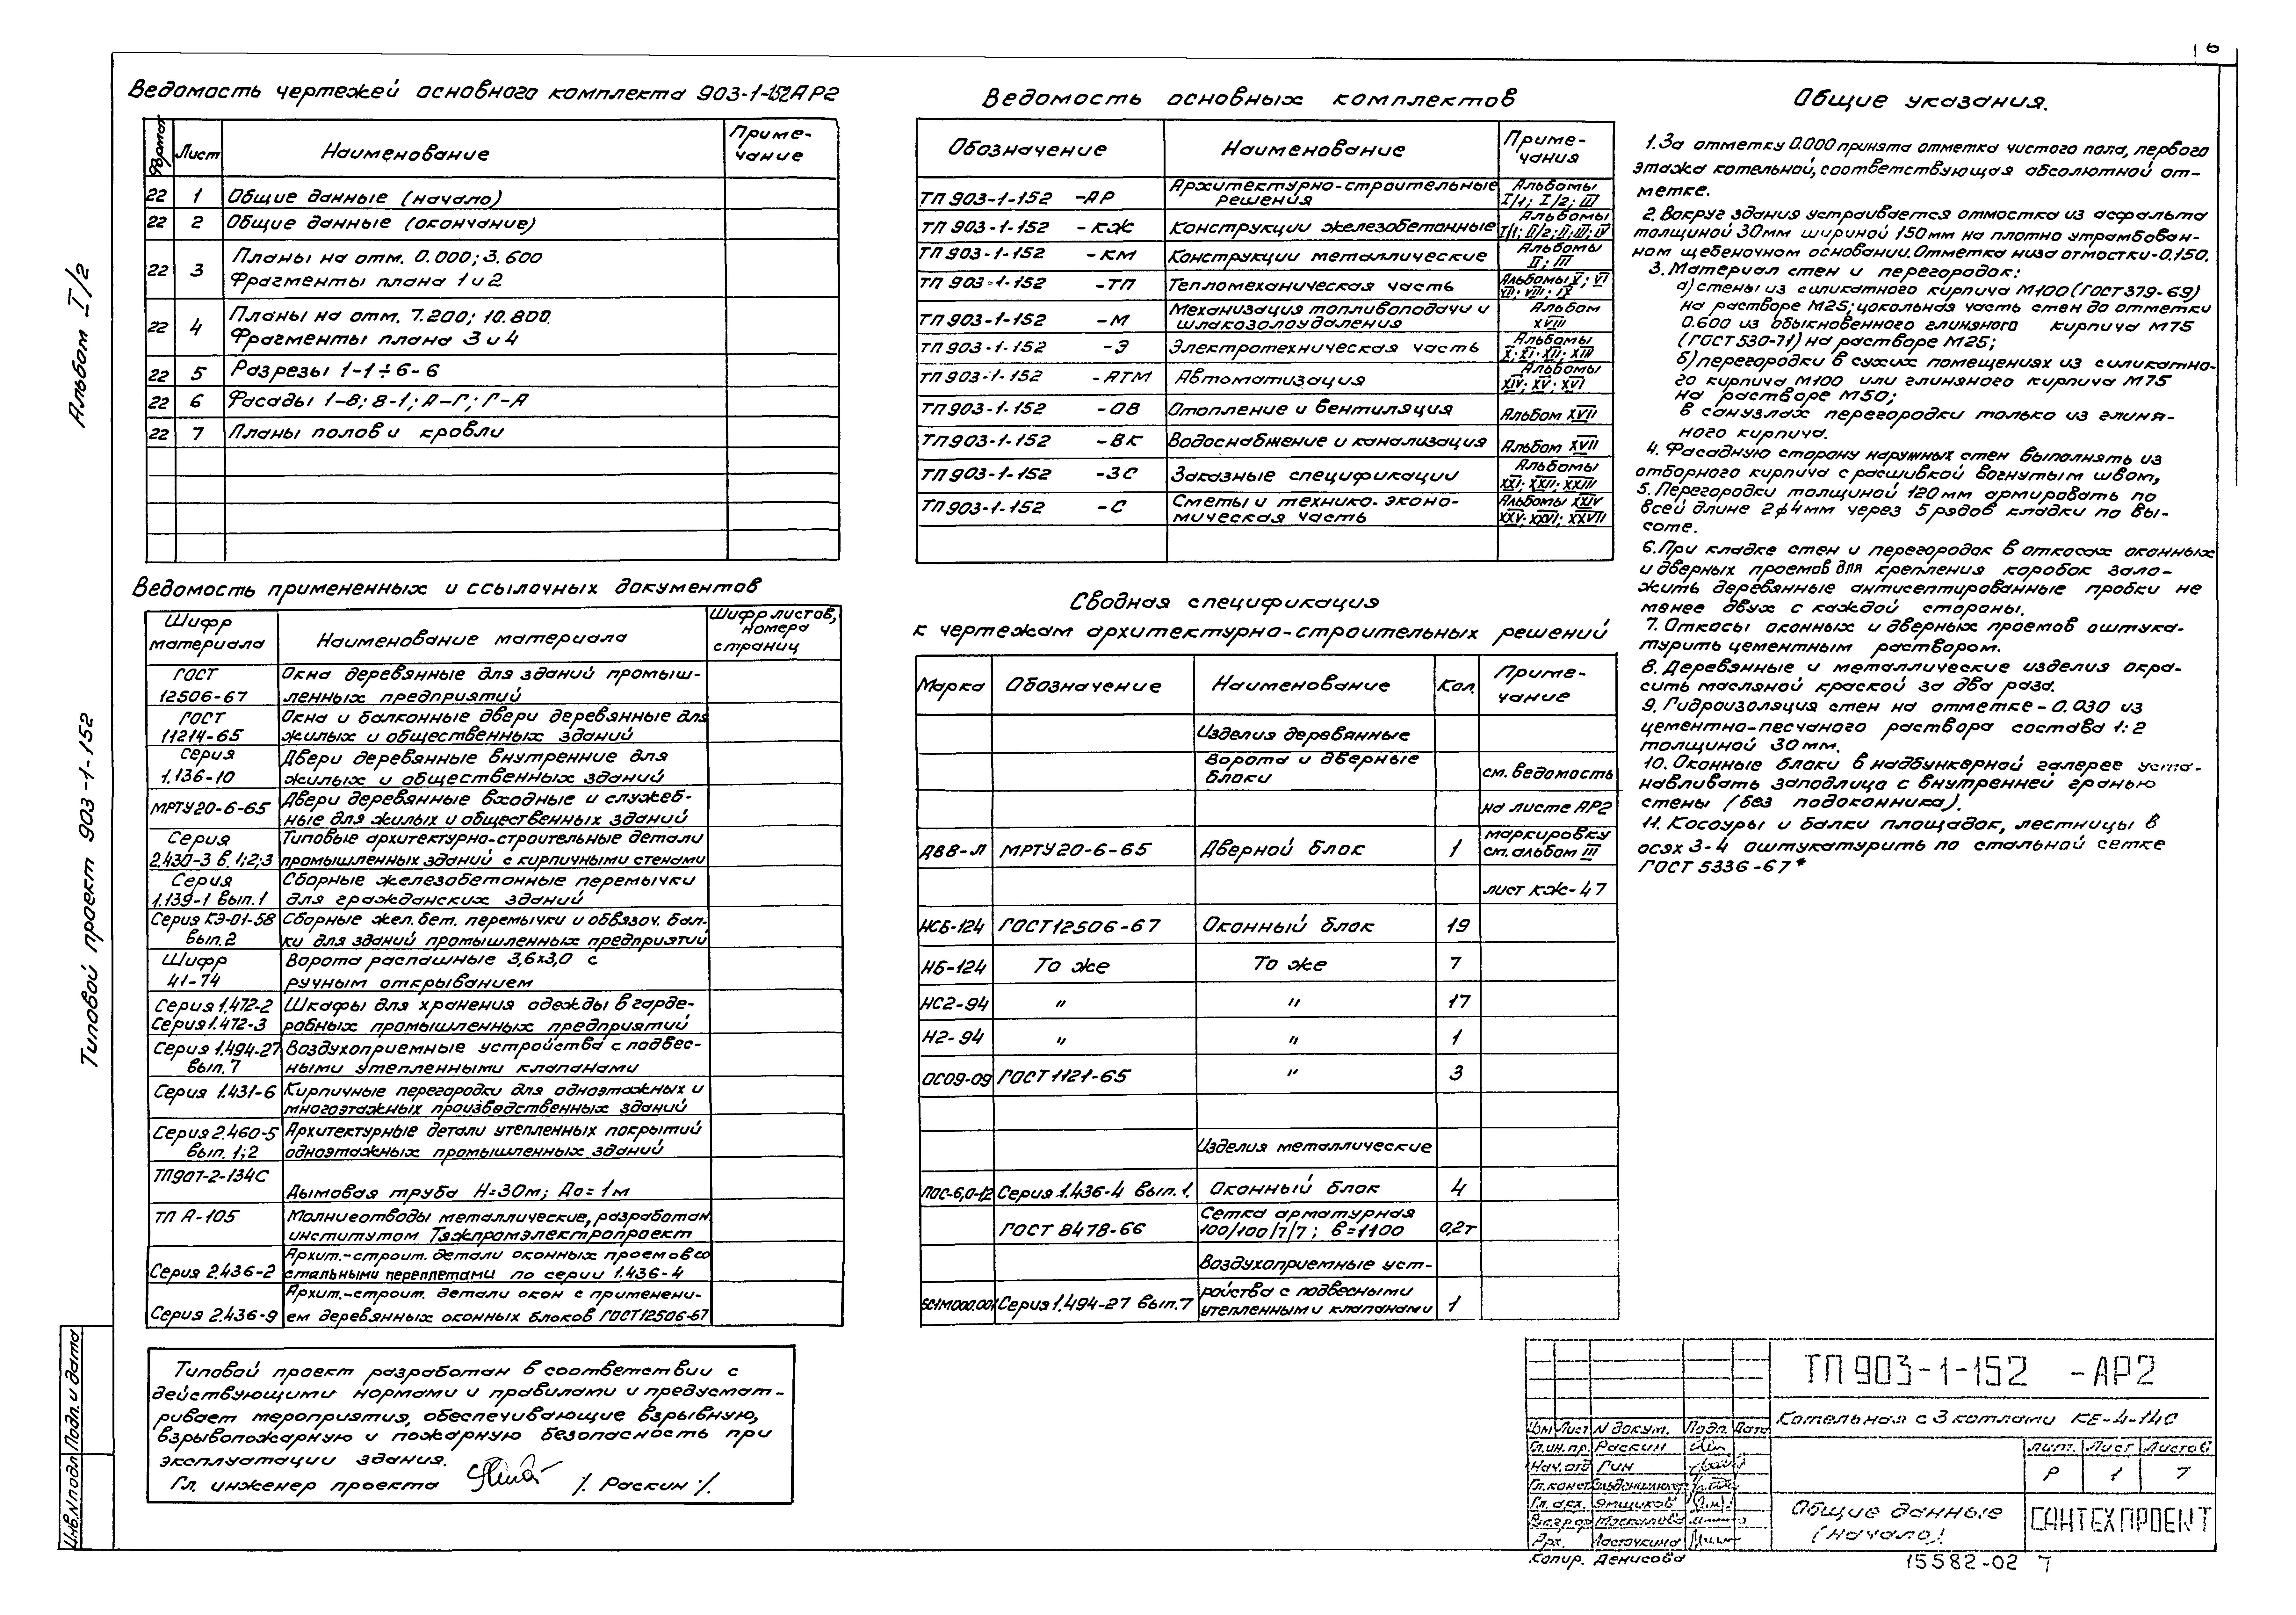 6
Альбом I/2
Типовой проект 903-1-152
Ведомость чертежей основного комплекта 903-1-152АР2
Формат
Лист
Наименование
Приме-
чание
22 1 Общие данные (начало)
22 2 Общие данные (окончание)
22 3 Планы на отм. 0.000; 3.600
Фрагменты плана 1 и 2
22 4 Планы на отм. 7.200; 10.800.
Фрагменты плана 3 и 4
22 5 Разрезы 1-1÷6-6
22 6 Фасады 1-8; 8-1; А-Г; Г-А
22 7 Планы полов и кровли
Ведомость примененных и ссылочных документов
Шифр
материала
Наименование материала
Шифр листов,
номера
страниц
ГОСТ
12506-67
Окна деревянные для зданий промыш-
ленных предприятий
ГОСТ
11214-65
Окна и балконные двери деревянные для
жилых и общественных зданий
Серия
1.136-10
Двери деревянные внутренние для
жилых и общественных зданий
МРТУ20-6-65
Двери деревянные входные и служеб-
ные для жилых и общественных зданий
Серия
2.430-3 в. 1;2;3
Типовые архитектурно-строительные детали
промышленных зданий с кирпичными стенами
Серия
1.139-1 вып.1
Сборные железобетонные перемычки
для гражданских зданий
Серия КЭ-01-58
вып.2
Сборные жел.бет. перемычки и обвязоч. бал-
ки для зданий промышленных предприятий
Шифр
41-74
Ворота распашные 3,6х3,0 с
ручным открыванием
Серия 1.472-2
Серия 1.472-3
Шкафы для хранения одежды в гарде-
робных промышленных предприятий
Серия 1.494-27
вып. 7
Воздухоприемные устройства с подвес-
ными утепленными клапанами
Серия 1.431-6
Кирпичные перегородки для одноэтажных и
многоэтажных производственных зданий
Серия 2.460-5
вып. 1;2
Архитектурные детали утепленных покрытий
одноэтажных промышленных зданий
ТП907-2-134С
Дымовая труба Н=30м; До=1м
ТП А-105
Молниеотводы металлические, разработан.
институтом Тяжпромэлектропроект
Серия 2.436-2
Архит.-строит. детали оконных проемов со
стальными переплетами по серии 1.436-4
Серия 2.436-9
Архит.-строит. детали окон с применени-
ем деревянных оконных блоков ГОСТ12506-67
Типовой проект разработан в соответствии с
действующими нормами и правилами и предусмат-
ривает мероприятия, обеспечивающие взрывную,
взрывопожарную и пожарную безопасность при
эксплуатации здания.
Гл. инженер проекта /. Раскин /.
Ведомость основных комплектов
Обозначение
Наименование
Приме-
чания
ТП 903-1-152 -АР
Архитектурно-строительные
решения
Альбомы
I/1; I/2; III
ТП 903-1-152 -КЖ
Конструкции железобетонные
Альбомы
I/1; II/2; II; III; IV
ТП 903-1-152 -КМ
Конструкции металлические
Альбомы
II; III
ТП 903-1-152 -ТП
Тепломеханическая часть
Альбомы V; VI
VII; VIII; IX
ТП 903-1-152 -М
Механизация топливоподачи и
шлакозолоудаления
Альбом
XVIII
ТП 903-1-152 -Э
Электротехническая часть
Альбомы
X; XI; XII; XIII
ТП 903-1-152 -АТМ
Автоматизация
Альбомы
XIV; XV; XVI
ТП 903-1-152 -ОВ
Отопление и вентиляция
Альбом XVII
ТП903-1-152 -ВК
Водоснабжение и канализация
Альбом XVII
ТП 903-1-152 -ЗС
Заказные спецификации
Альбомы
XXI; XXII; XXIII
ТП903-1-152 -С
Сметы и технико-эконо-
мическая часть
Альбомы XXIV
XXV; XXVI; XXVII
Сводная спецификация
к чертежам архитектурно-строительных решений
Марка
Обозначение
Наименование
Кол.
Приме-
чание
Изделия деревянные
Ворота и дверные
блоки
см. ведомость
на листе АР2
ДВ8-Л МРТУ20-6-65 Дверной блок 1
маркировку
см. альбом III
лист КЖ-47
НСБ-124 ГОСТ12506-67 Оконный блок 19
НБ-124 То же То же 7
НС2-94 " " 17
Н2-94 " " 1
ОС09-09 ГОСТ 1121-65 " 3
Изделия металлические
ПОС-6,0-12 Серия 1.436-4 вып.1. Оконный блок 4
ГОСТ 8478-66
Сетка арматурная
100/100/7/7; в=1100
0,2т
Воздухоприемные уст-
ройства с подвесными
утепленными клапанами
Серия 1.494-27 вып.7
1
Общие указания.
1. За отметку 0.000 принята отметка чистого пола, первого
этажа котельной, соответствующая абсолютной от-
метке.
2. Вокруг здания устраивается отмостка из асфальта
толщиной 30мм шириной 150мм на плотно утрамбован-
ном щебеночном основании. Отметка низа отмостки-0.150.
3. Материал стен и перегородок:
а) стены из силикатного кирпича М100 (ГОСТ379-69)
на растворе М25; цокольная часть стен до отметки
0.600 из обыкновенного глиняного кирпича М75
(ГОСТ 530-71) на растворе М25;
б) перегородки в сухих помещениях из силикатно-
го кирпича М100 или глиняного кирпича М75
на растворе М50;
в санузлах перегородки только из глиня-
ного кирпича.
4. Фасадную сторону наружных стен выполнять из
отборного кирпича с расшивкой вогнутым швом,
5. Перегородки толщиной 120мм армировать по
всей длине 2ф4мм через 5 рядов кладки по вы-
соте.
6. При кладке стен и перегородок в откосах оконных
и дверных проемов для крепления коробок зало-
жить деревянные антисептированные пробки не
менее двух с каждой стороны.
7. Откосы оконных и дверных проемов оштука-
турить цементным раствором.
8. Деревянные и металлические изделия окра-
сить масляной краской за два раза.
9. Гидроизоляция стен на отметке-0.030 из
цементно-песчаного раствора состава 1:2
толщиной 30мм.
10. Оконные блоки в надбункерной галерее уста-
навливать заподлицо с внутренней гранью
стены (без подоконника).
11. Косоуры и балки площадок, лестницы в
осях 3-4 оштукатурить по стальной сетке
ГОСТ 5336-67*
ТП 903-1-152 -АР2
Котельная с 3 котлами КЕ-4-14С
Изм Лист N докум. Подп. Дата
Гл.ин.пр. Раскин
Нач.отд Гин
Гл.конст.
Гл.арх. Ямщиков
Разраб
Арх. Ласточкина
Лит. Лист Листов
Р 1 7
Общие данные
(начало)
САНТЕХПРОЕКТ
Копир. Денисова
15582-02 7
Инв.N подл Подп. и дата